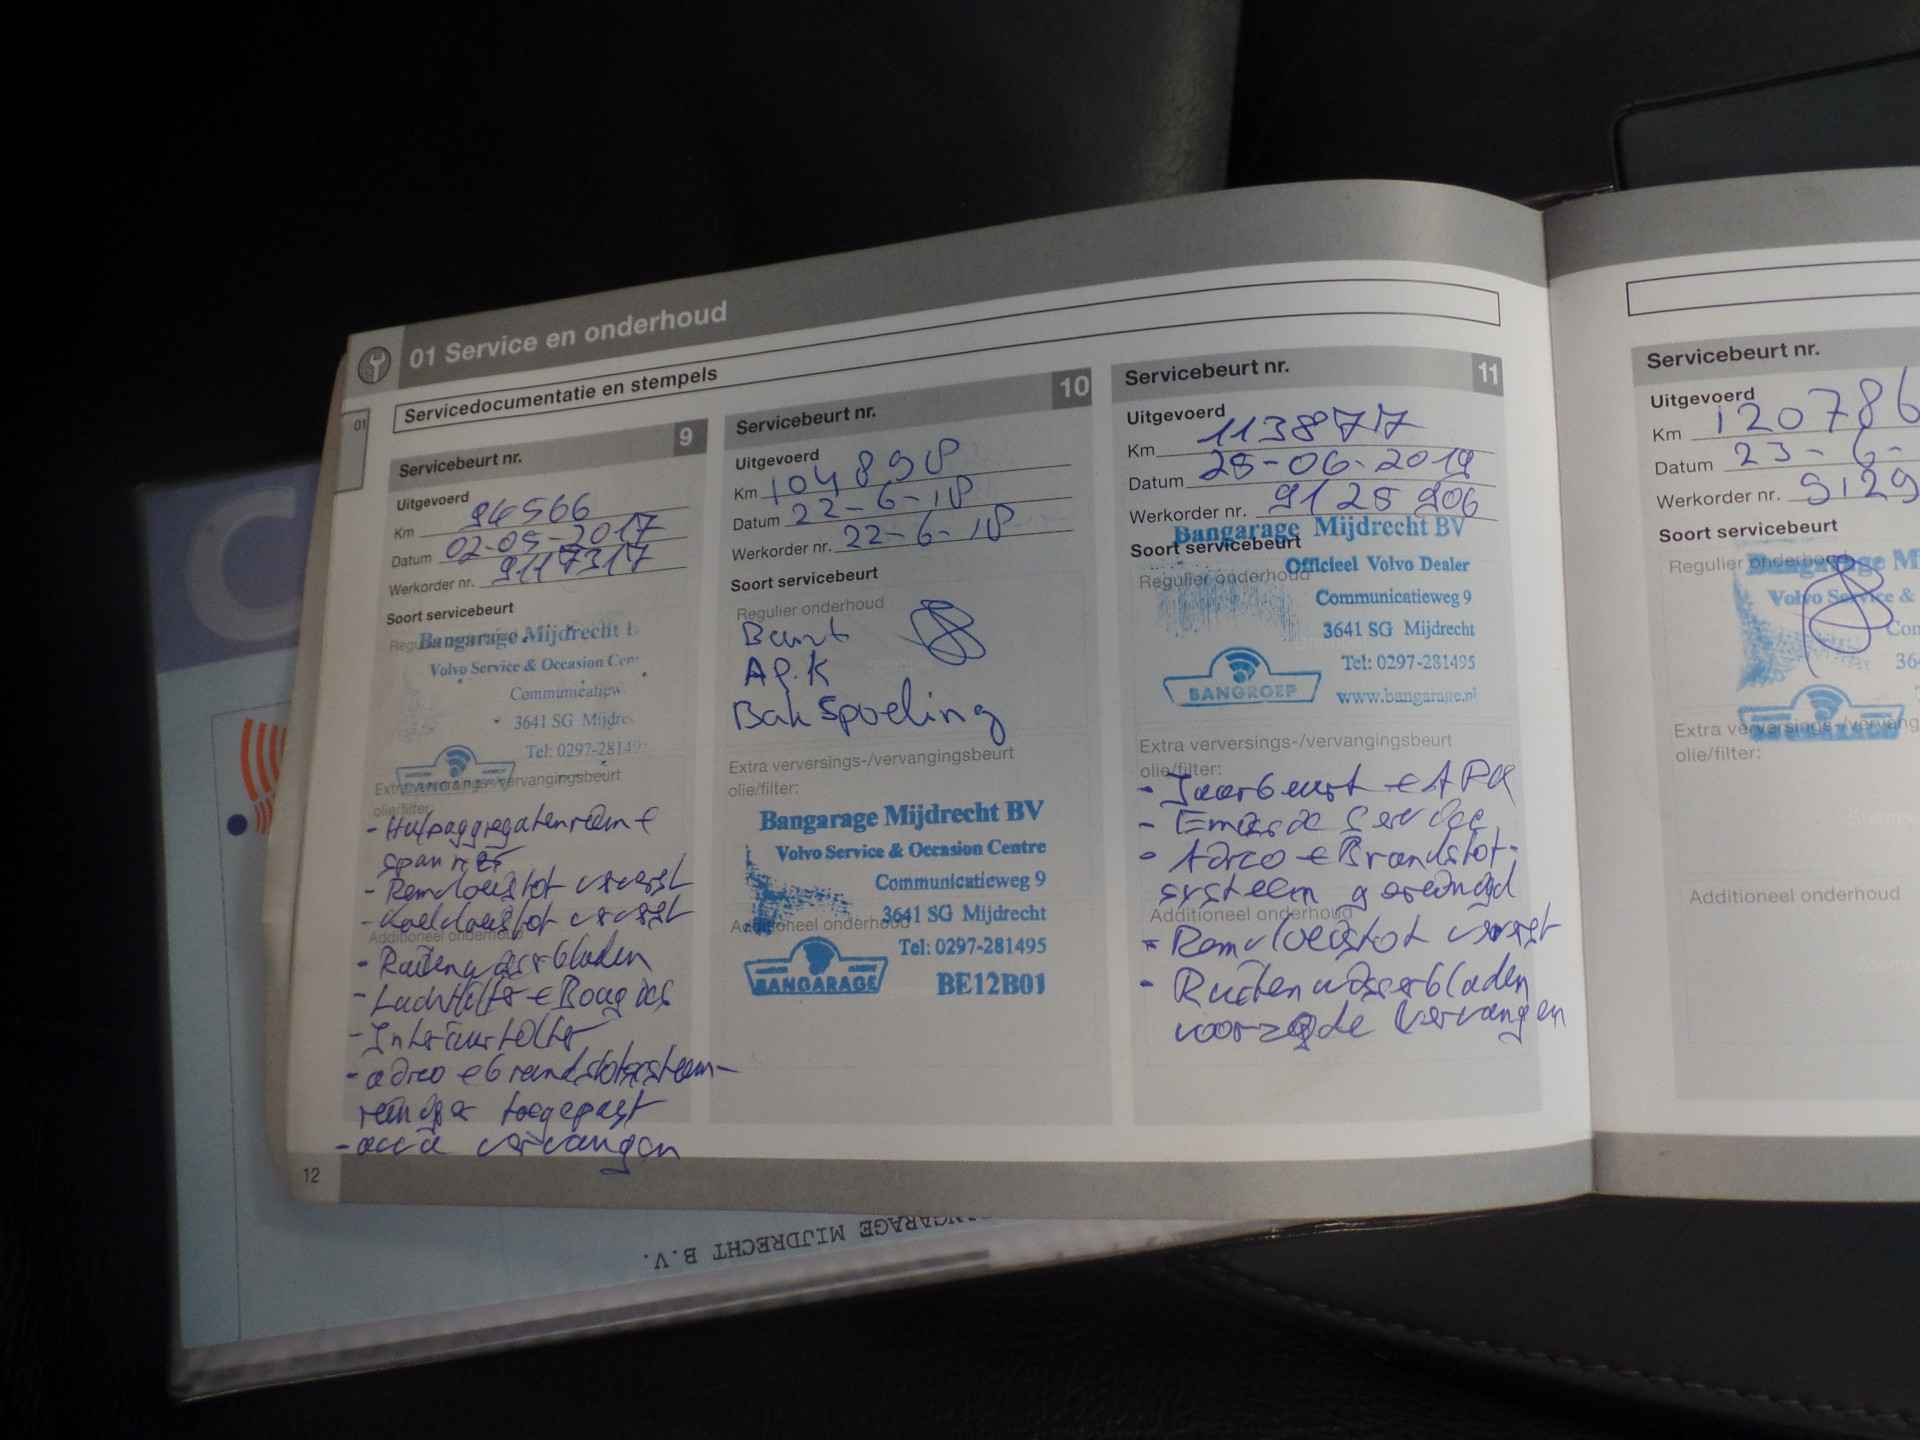 01 Service en onderhoud
01
Servicedocumentatie en stempels
Servicebeurt nr. 9
Uitgevoerd
Km 94566
Datum 02-05-2017
Werkorder nr. 9117317
Soort servicebeurt
Bangarage Mijdrecht
Volvo Service & Occasion Cen
Communicatiew
3641 SG Mijdrec
Tel: 0297-28149
Extra verversings-/vervangingsbeurt
olie/filter:
- Hulpaggregatenriem +
spanner
- Remvloeistof ververst
- Koelvloeistof ververst
Additioneel onderhoud
- Ruitenwisserbladen
- Luchtfilter + Bougies
- Interieurfilter
- airco + brandstofsysteem-
reiniger toegepast
- accu vervangen
12
Servicebeurt nr. 10
Uitgevoerd
Km 104898
Datum 22-6-18
Werkorder nr. 22-6-18
Soort servicebeurt
Regulier onderhoud
Beurt
APK
Bak Spoeling
Extra verversings-/vervangingsbeurt
olie/filter:
Bangarage Mijdrecht BV
Volvo Service & Occasion Centre
Communicatieweg 9
3641 SG Mijdrecht
Additioneel onderhoud
Tel: 0297-281495
BANGARAGE
BE12B01
Servicebeurt nr. 11
Uitgevoerd
Km 113877
Datum 28-06-2019
Werkorder nr. 9128906
Bangarage Mijdrecht BV
Soort servicebeurt
Officieel Volvo Dealer
Regulier onderhoud
Communicatieweg 9
3641 SG Mijdrecht
Tel: 0297-281495
BANGROEP
www.bangarage.nl
Extra verversings-/vervangingsbeurt
olie/filter:
- Jaarbeurt + APK
- Service
- Airco + Brandstof-
systeem gereinigd
Additioneel onderhoud
- Remvloeistof ververst
- Ruitenwisserbladen
voorzijde vervangen
Servicebeurt nr.
Uitgevoerd
Km 120786
Datum 23-6-
Werkorder nr. 9129
Soort servicebeurt
Regulier onderhoud
Bangarage Mi
Volvo Service &
Com
36
Extra verversings-/vervang
olie/filter:
Additioneel onderhoud
BANGARAGE MIJDRECHT B.V.